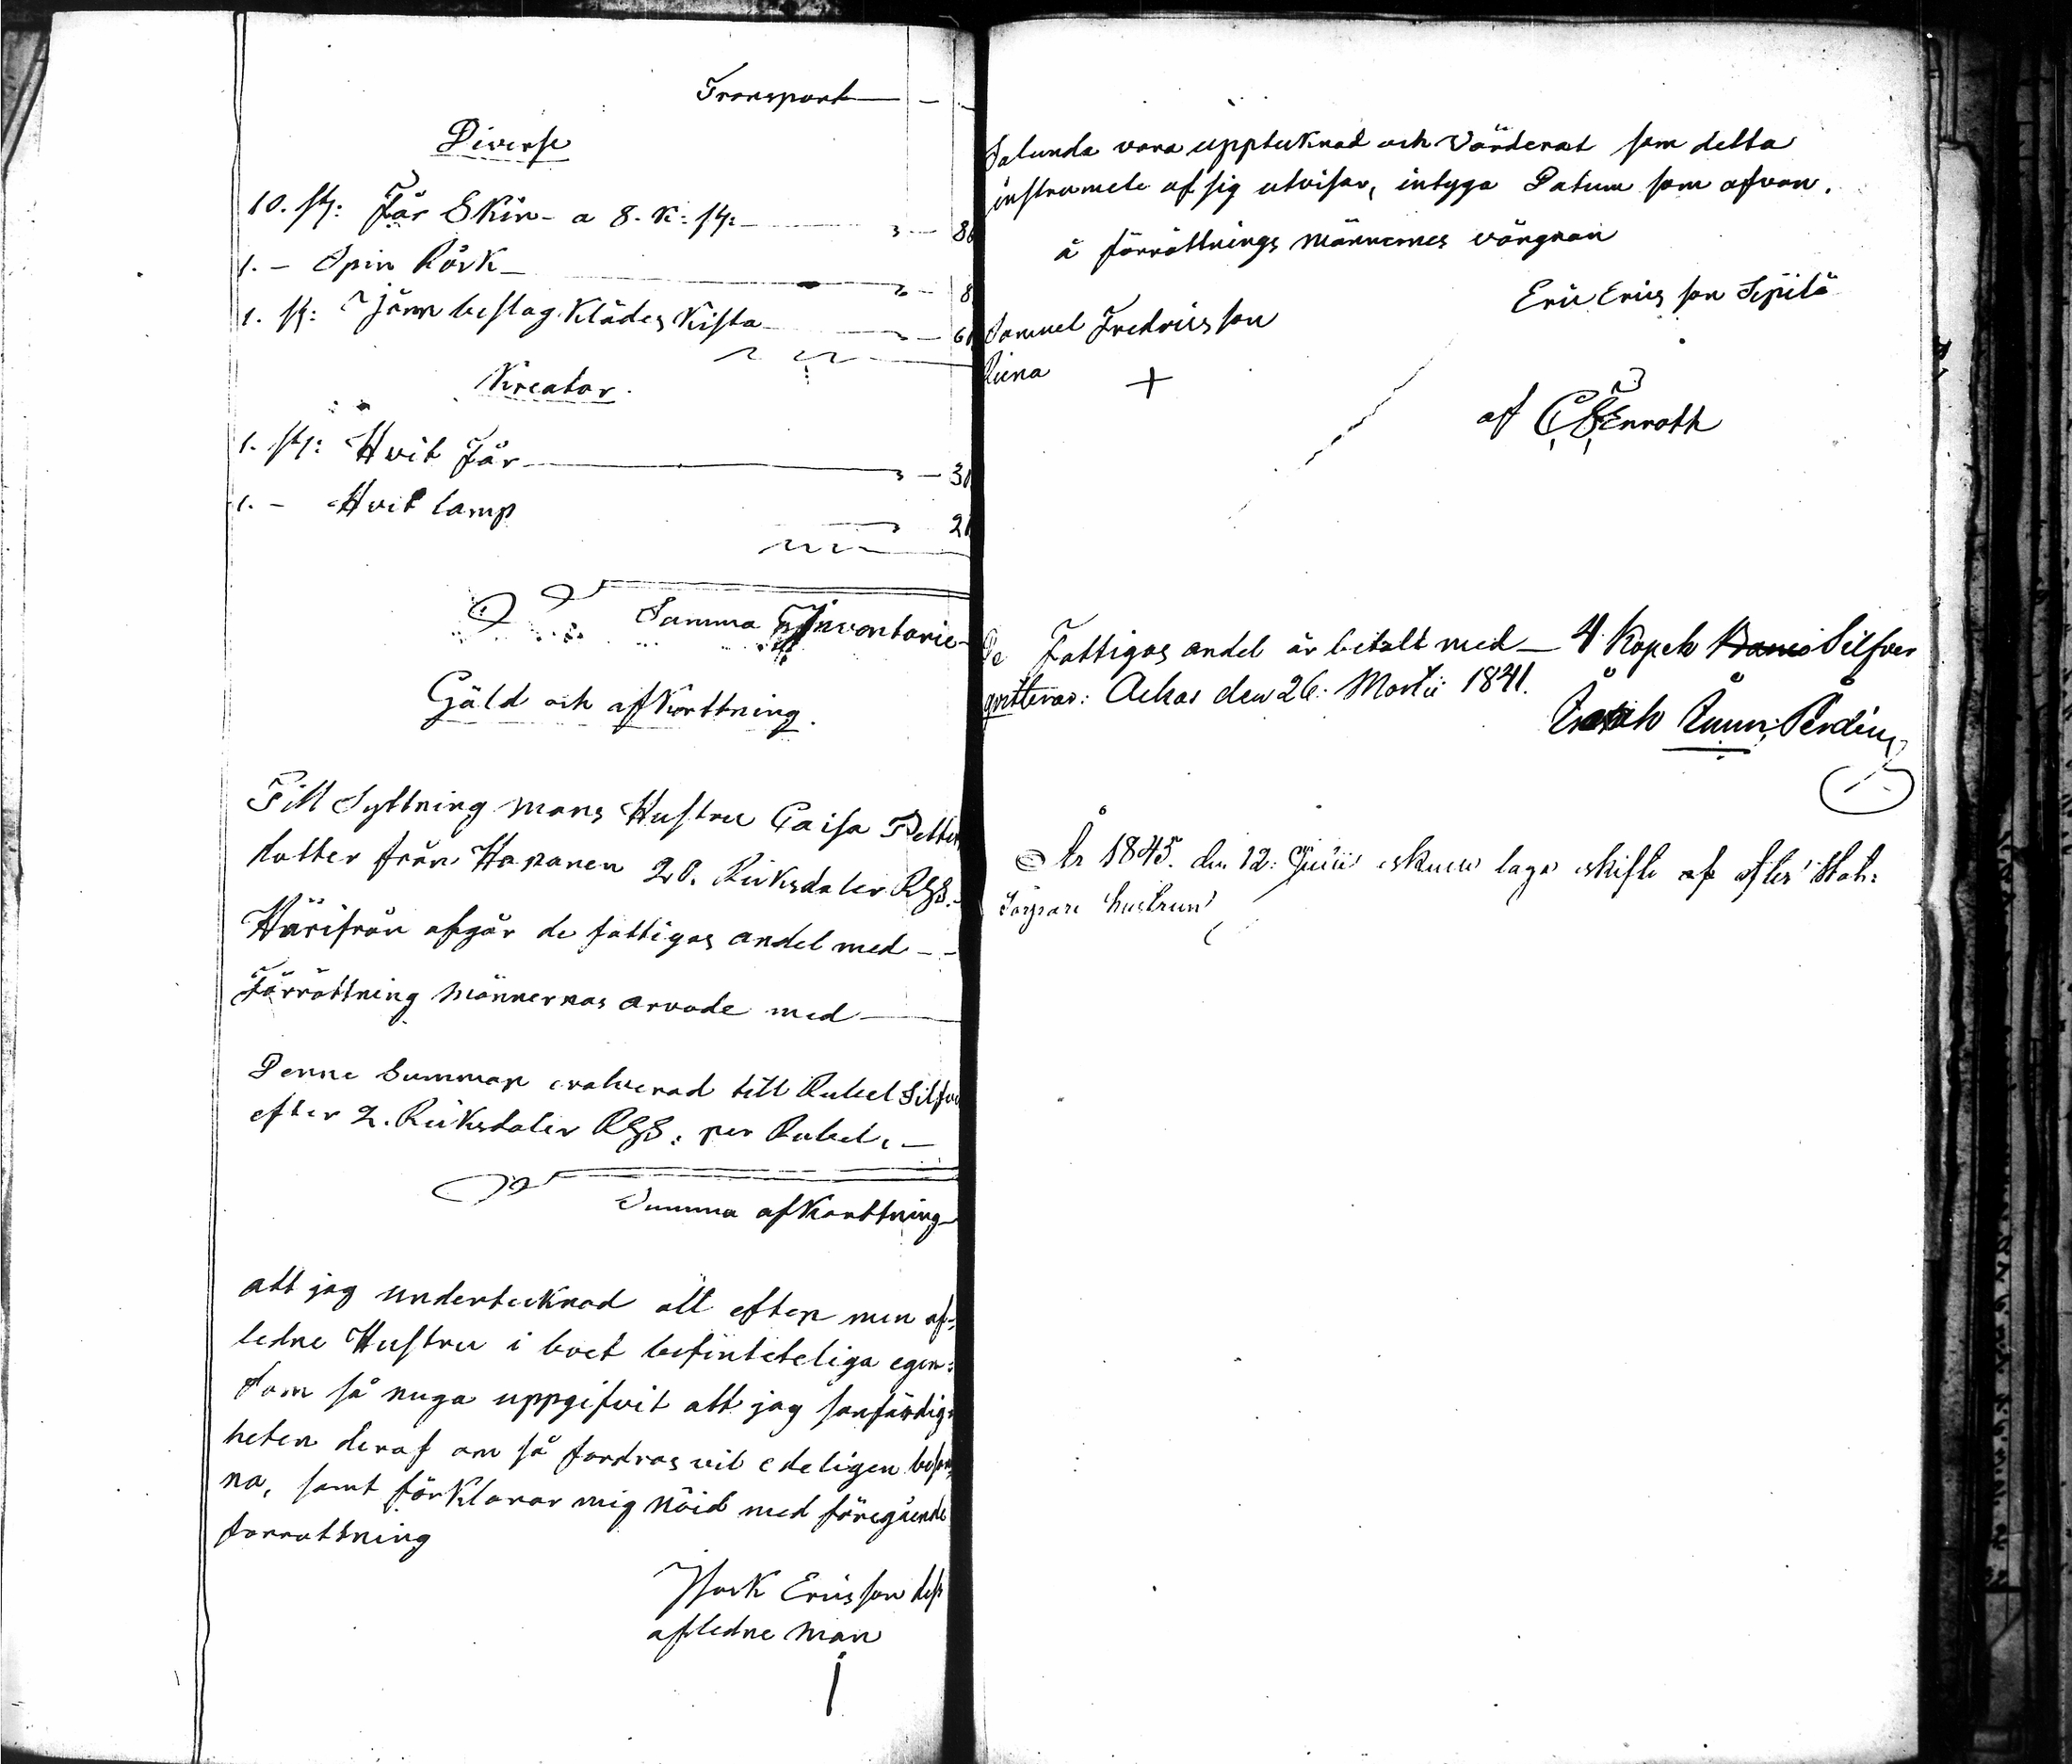 Transport
Diverse
10. st: Får Skin - a 8. k: st:
1. - Spin Råck
1. st: Järn beslag Klädes Kista
Kreatur.
1. st: Hvit Får
1. - Hvit lamp
Summa Inventarie
Gäld och afkorttning.
Till Syttning mans Hustru Caisa Petters
dotter från Hapanen 20. Riiksdaler RGS.
Härifrån afgår de fattigas andel med
Förrättning männernas arvode med
Denne Summan evalverad till Rubel Silfver
efter 2. Riiksdaler RGS. per Rubel.
Summa afkorttning
att jag undertecknad alt efter min af-
ledne Hustru i boet befinteteliga egen:
dom så nuga uppgifvit att jag sanfärdig
heten deraf om så fordras vil edeligen
na, samt förklarar mig nöid med föregående
forrattning
Isack Ericsson
afledne man
Salunda vara upptecknad och värderat som detta
instrumete af sig utvisar, intyga Datum som ofvan.
å förrättnings männernes vängnan
Eric Ericsson Sipilä
Samuel Fredricsson
+
af C Enroth
De Fattigas andel är betalt med 4 Kopek Banco Silfver
qvitteras: Ackas den 26. Martii 1841.
År 1845. den 12. Junii laga skifte af
hustrun